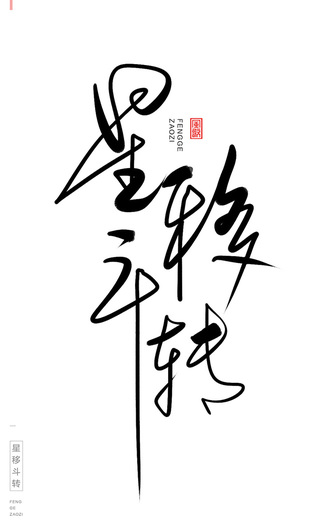 星移斗转
FENGGE
ZAOZI
星移斗转
FENG
GE
ZAOZI